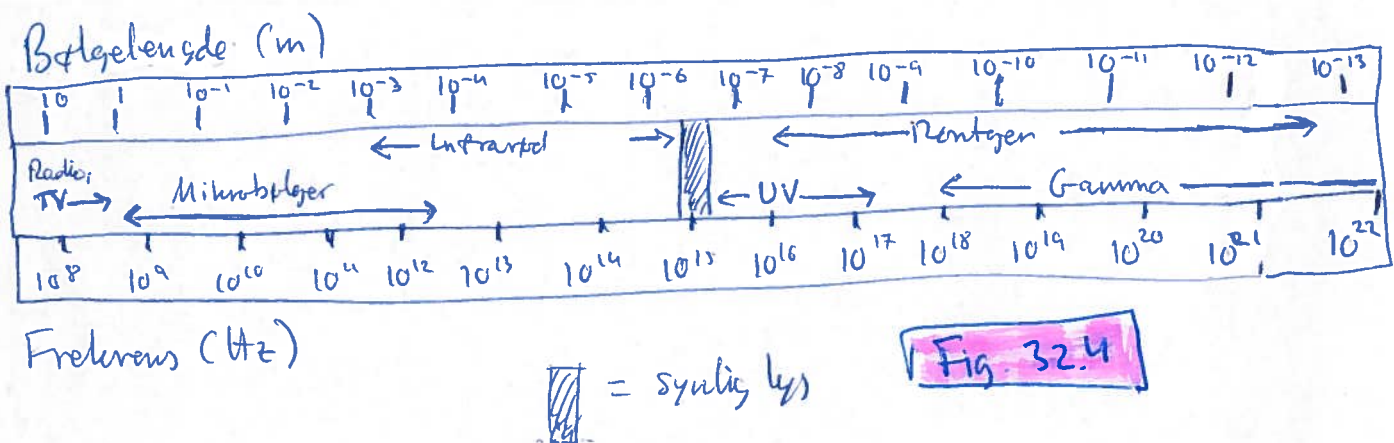 Bølgelengde (m)
10 1 10⁻¹ 10⁻² 10⁻³ 10⁻⁴ 10⁻⁵ 10⁻⁶ 10⁻⁷ 10⁻⁸ 10⁻⁹ 10⁻¹⁰ 10⁻¹¹ 10⁻¹² 10⁻¹³
← Infrarød → ← Röntgen →
Radio,
TV → Mikrobølger ← UV → ← Gamma
10⁸ 10⁹ 10¹⁰ 10¹¹ 10¹² 10¹³ 10¹⁴ 10¹⁵ 10¹⁶ 10¹⁷ 10¹⁸ 10¹⁹ 10²⁰ 10²¹ 10²²
Frekvens (Hz)
= synlig lys
Fig. 32.4